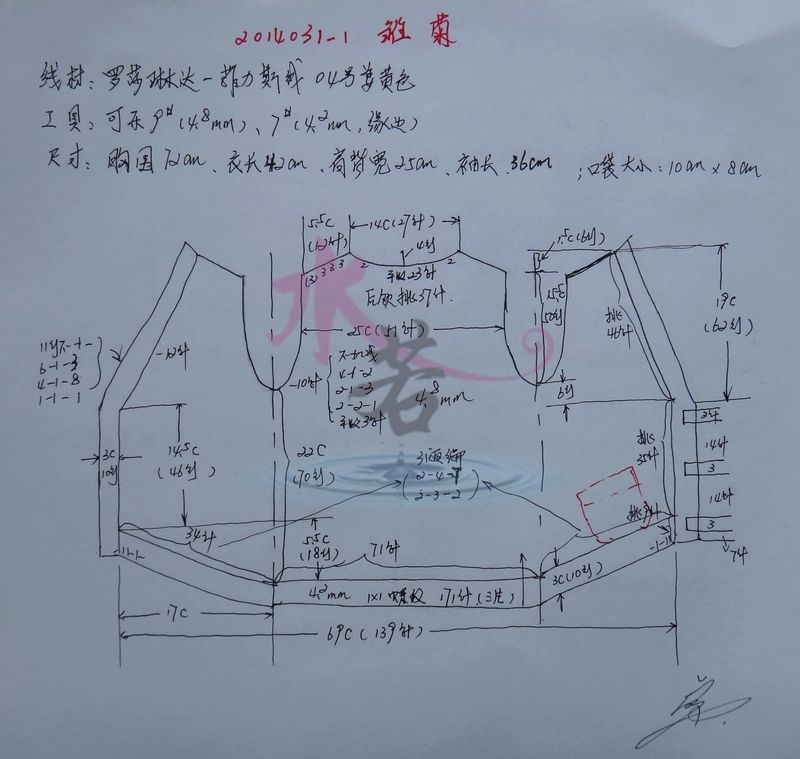 2014031-1 雏菊
线材: 罗莎琳达-菲力斯绒 04号姜黄色
工具: 可乐9#(4.8mm)、7#(4.2mm,缘边)
尺寸: 胸围72cm、衣长42cm、肩背宽25cm、袖长36cm ;口袋大小:10cm×8cm
5.5C
(12针)
14C(27针)
1.5C(6行)
4行
(3) 3 3 3 2
平收23针
2
后领挑37针.
15.5C
50行
挑
46针
19C
(62行)
25C(51针)
11行不-1-
6-1-3
4-1-8
1-1-1
-12针
-10针
不加减
4-1-2
2-1-3
2-2-1
平收3针
4.8
mm
水若
6行
3C
10行
14.5C
(46行)
22C
(70行)
3酒窝
2-4-7
2-3-2
挑
35针
3针
14针
3
14针
3
7针
34针
5.5C
(18行)
71针
-11-1
-1-11
3C(10行)
4.2mm 1×1螺纹 171针(3片)
17C
69C(139针)